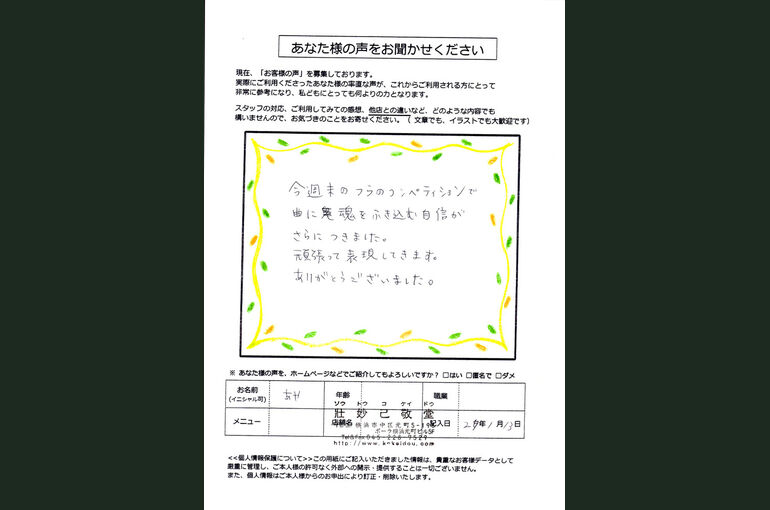 あなた様の声をお聞かせください
現在、「お客様の声」を募集しております。
実際にご利用くださったあなた様の率直な声が、これからご利用される方にとって
非常に参考になり、私どもにとっても何よりの力となります。
スタッフの対応、ご利用してみての感想、他店との違いなど、どのような内容でも
構いませんので、お気づきのことをお寄せください。（文章でも、イラストでも大歓迎です）
今週末のフラのコンペティションで
曲に魂をふき込む自信が
さらにつきました。
頑張って表現してきます。
ありがとうございました。
※ あなた様の声を、ホームページなどでご紹介してもよろしいですか？ □はい □匿名で □ダメ
お名前 年齢 職業
(イニシャル可)
ソウ トウ コ ケイ ドウ
壯妙己敬堂
メニュー 店舗名 記入日 29年1月13日
横浜市中区元町5-198
ポーラ横浜元町ビル5F
Tel&Fax 045-228-9529
http://www.k-keidou.com
<<個人情報保護について>>この用紙にご記入いただきました情報は、貴重なお客様データとして
厳重に管理し、ご本人様の許可なく外部への開示・提供することは一切ございません。
また、個人情報はご本人様からのお申出により訂正・削除いたします。